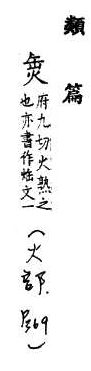 類篇
缹
府九切火熟之
也亦書作文一
(火部.